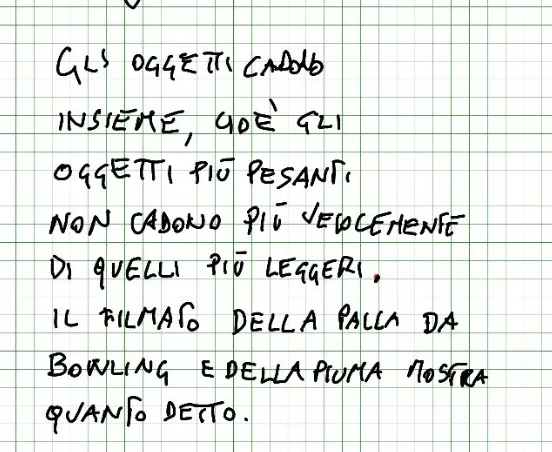 GLI OGGETTI CADONO
INSIEME, CIOÈ GLI
OGGETTI PIÙ PESANTI
NON CADONO PIÙ VELOCEMENTE
DI QUELLI PIÙ LEGGERI.
IL FILMATO DELLA PALLA DA
BOWLING E DELLA PIUMA MOSTRA
QUANTO DETTO.